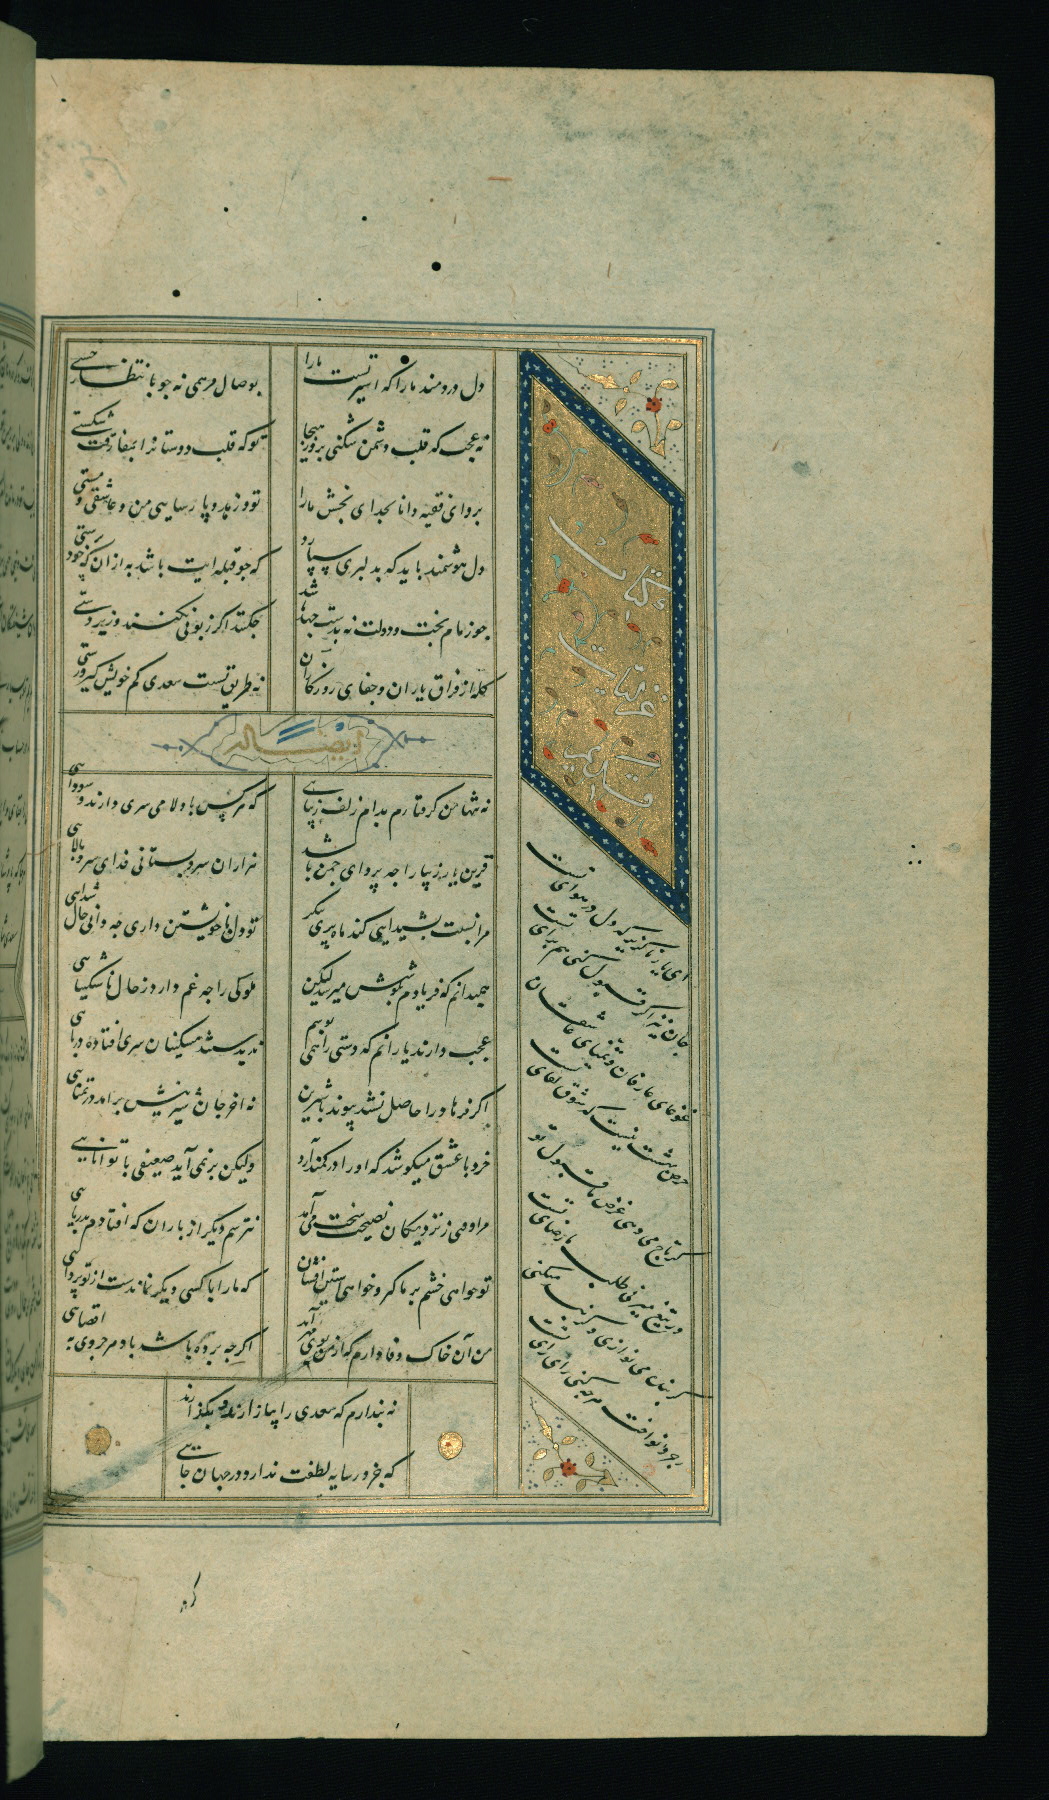 دل دردمند ما را که اسیر تست یارا
بوصال مرهمی نه جو بانتظار خستی
نه عجب که قلب دشمن شکنی بروز هیجا
تو که قلب دوستانرا بمفارقت شکستی
برو ای فقیه دانا بخدای بخش ما را
تو و زهد و پارسایی من و عاشقی و مستی
دل هوشمند باید که بدلبری سپارد
که جو قبله ایت باشد به از ان که خود پرستی
جو زمام بخت و دولت نه بدست جهد باشد
جکنند اکر زبونی نکنند و زیردستی
کله از فراق یاران و جفای روزکاران
نه طریق تست سعدی کم خویش کیر و رستی
ایضا له
نه تنها من کرفتارم بدام زلف زیبایی
که هر کس با دلارامی سری دارند و سودایی
قرین یار زیبا را جه پروای جمن باشد
هزاران سرو بستانی فدای سرو بالایی
مرا نسبت بشیدایی کند ماه پری پیکر
تو دل با خویشتن داری جه دانی حال شیدایی
همیدانم که فریادم بکوشش میرسد لیکن
ملوکی را جه غم دارد ز حال ناشکیبایی
عجب دارند یارانم که دستی را همی بوسم
ندیدستند مسکینان سری افتاده در پایی
اکر فرهاد را حاصل نشد پیوند با شیرین
نه اخر جان شیرینش برامد در تمنایی
خرد با عشق میکوشد که او را در کمند آرد
ولیکن بر نمی آید ضعیفی با توانایی
مرا وقتی ز نزدیکان نصیحت سخت می آمد
نترسم دیکر از باران که افتادم بدریایی
تو خواهی خشم بر ما کیر و خواهی استین افشان
که ما را با کسی دیکر نماندست از تو پروایی
من آن خاک وفادارم که از من بوی مهر آمد
اکر جه برده باشد باد هر جزوی به اقصایی
نه بندارم که سعدی را بیازارند و بکذارند
که جز در سایه لطفت ندارد در جهان جایی
کتاب
غزلیات
قدیم
ای یار ناکزیر که دل در هوای تست
جان نیز اکر قبول کنی هم برای تست
غوغای عارفان و تمنای عاشقان
حرص بهشت نیست که شوق لقای تست
کر تاج می دهی غرض ما قبول تو
ور تیغ میزنی طلب ما رضای تست
کر بنده می نوازی و کر بند میکنی
زجر و نواخت هر جه کنی رای رای تست